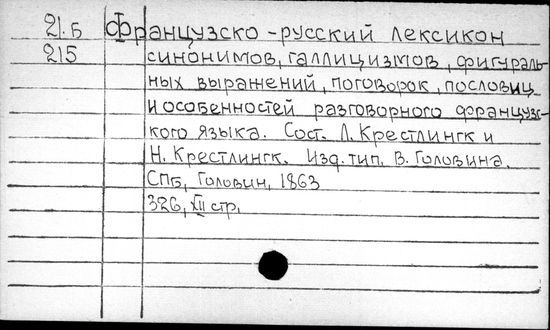 21.Б Французско-русский лексикон
215 синонимов, галлицизмов, фигураль-
ных выражений, поговорок, пословиц
и особенностей разговорного французс-
кого языка. Сост. Л. Крестлингк и
Н. Крестлингк. Изд. тип. В. Головина.
СПб, Головин, 1863
326, XII стр.